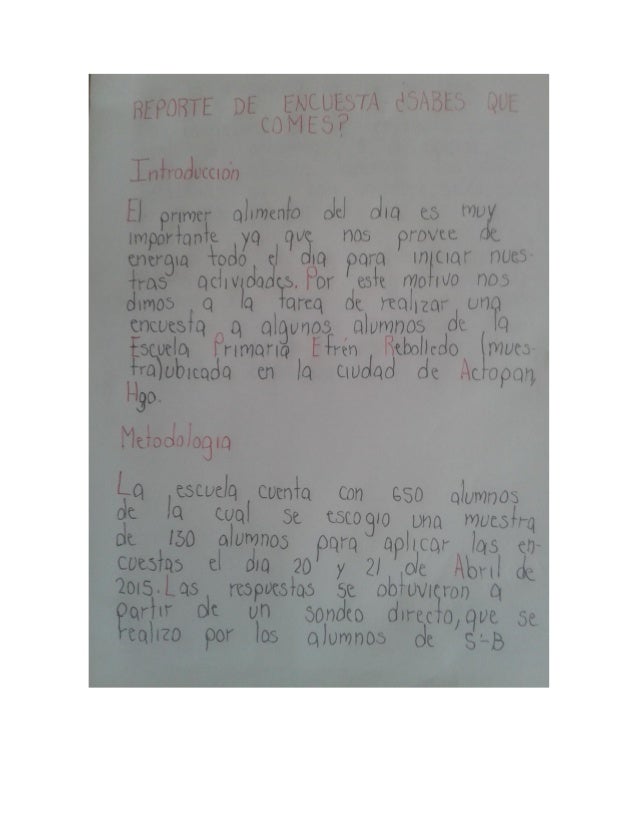 REPORTE DE ENCUESTA ¿SABES QUE
COMES?
Introducción
El primer alimento del dia es muy
importante ya que nos provee de
energia todo el dia para iniciar nues-
tras actividades. Por este motivo nos
dimos a la tarea de realizar una
encuesta a algunos alumnos de la
Escuela Primaria Efrén Rebolledo (mues-
tra) ubicada en la ciudad de Actopan,
Hgo.
Metodologia
La escuela cuenta con 650 alumnos
de la cual se escogio una muestra
de 130 alumnos para aplicar las en-
cuestas el dia 20 y 21 de Abril de
2015. Las respuestas se obtuvieron a
partir de un sondeo directo, que se
realizo por los alumnos de 5-B